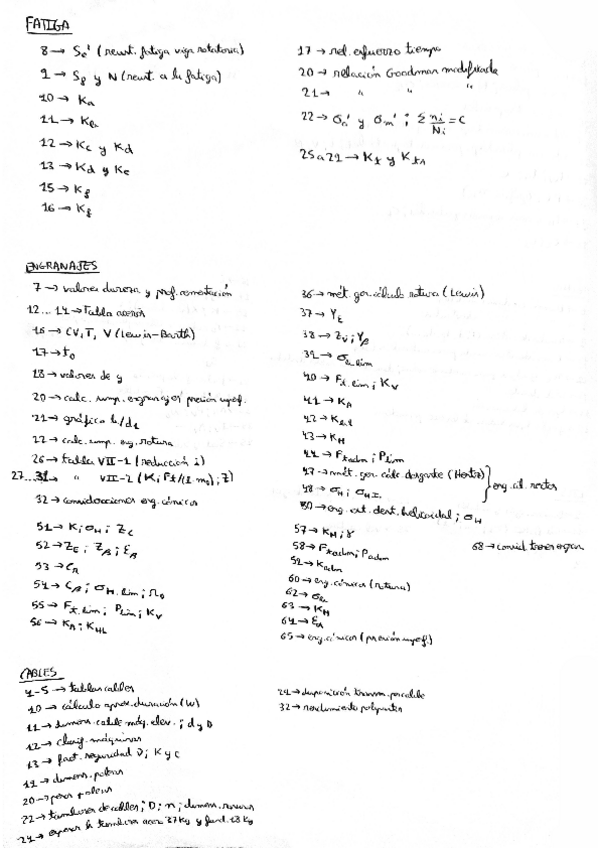 FATIGA
8 → Se' (resist. fatiga viga rotatoria)
9 → Sf y N (resist. a la fatiga)
10 → Ka
11 → Kb
12 → Kc y Kd
13 → Kd y Ke
15 → Kf
16 → Kf
17 → rel. esfuerzo tiempo
20 → relación Goodman modificada
21 → " " "
22 → σa' y σm' ; Σ ni/Ni = C
25 a 29 → Kt y Kts
ENGRANAJES
7 → valores dureza y prof. cementación
12...14 → Tabla aceros
16 → CV, T, V (Lewis-Barth)
17 → to
18 → valores de y
20 → calc. simp. engranajes presión superf.
21 → gráfico b/d1
22 → calc. simp. eng. rotura
26 → tabla VII-1 (reducción i)
27...31 → " VII-2 (K; Ft/(1 mo); Z)
32 → consideraciones eng. cónicos
51 → K; σH; Zc
52 → ZE; Zβ; Eβ
53 → CR
54 → Cβ; σH.lim; no
55 → Ft.lim; Plim; KV
56 → KA; KHL
36 → mét. gen. cálculo rotura (Lewis)
37 → Yε
38 → Zv; Yβ
39 → σb.lim
40 → Ft.lim; KV
41 → KA
42 → Kbl
43 → KM
44 → Ftadm; Plim
47 → mét. gen. cálc. desgaste (Hertz)
48 → σH; σHI } eng. cil. rectos
50 → eng. cil. dent. helicoidal; σH
57 → KM; γ
58 → Ftadm; Padm
59 → Kadm
60 → eng. cónicos (rotura)
62 → σb
63 → KM
64 → Eβ
65 → eng. cónicos (presión superf.)
68 → consid. tren engran
CABLES
4-5 → tablas cables
10 → cálculo aprox. duración (W)
11 → dimens. cable máq. elev.; d y D
12 → clasif. máquinas
13 → fact. seguridad ν; K y C
19 → dimens. poleas
20 → peso poleas
22 → tambores de cables; D; n; dimens. ranuras
24 → espesor h tambores acero 37 Kg y fund. 18 Kg
29 → disposición transm. por cable
32 → rendimiento polipastos